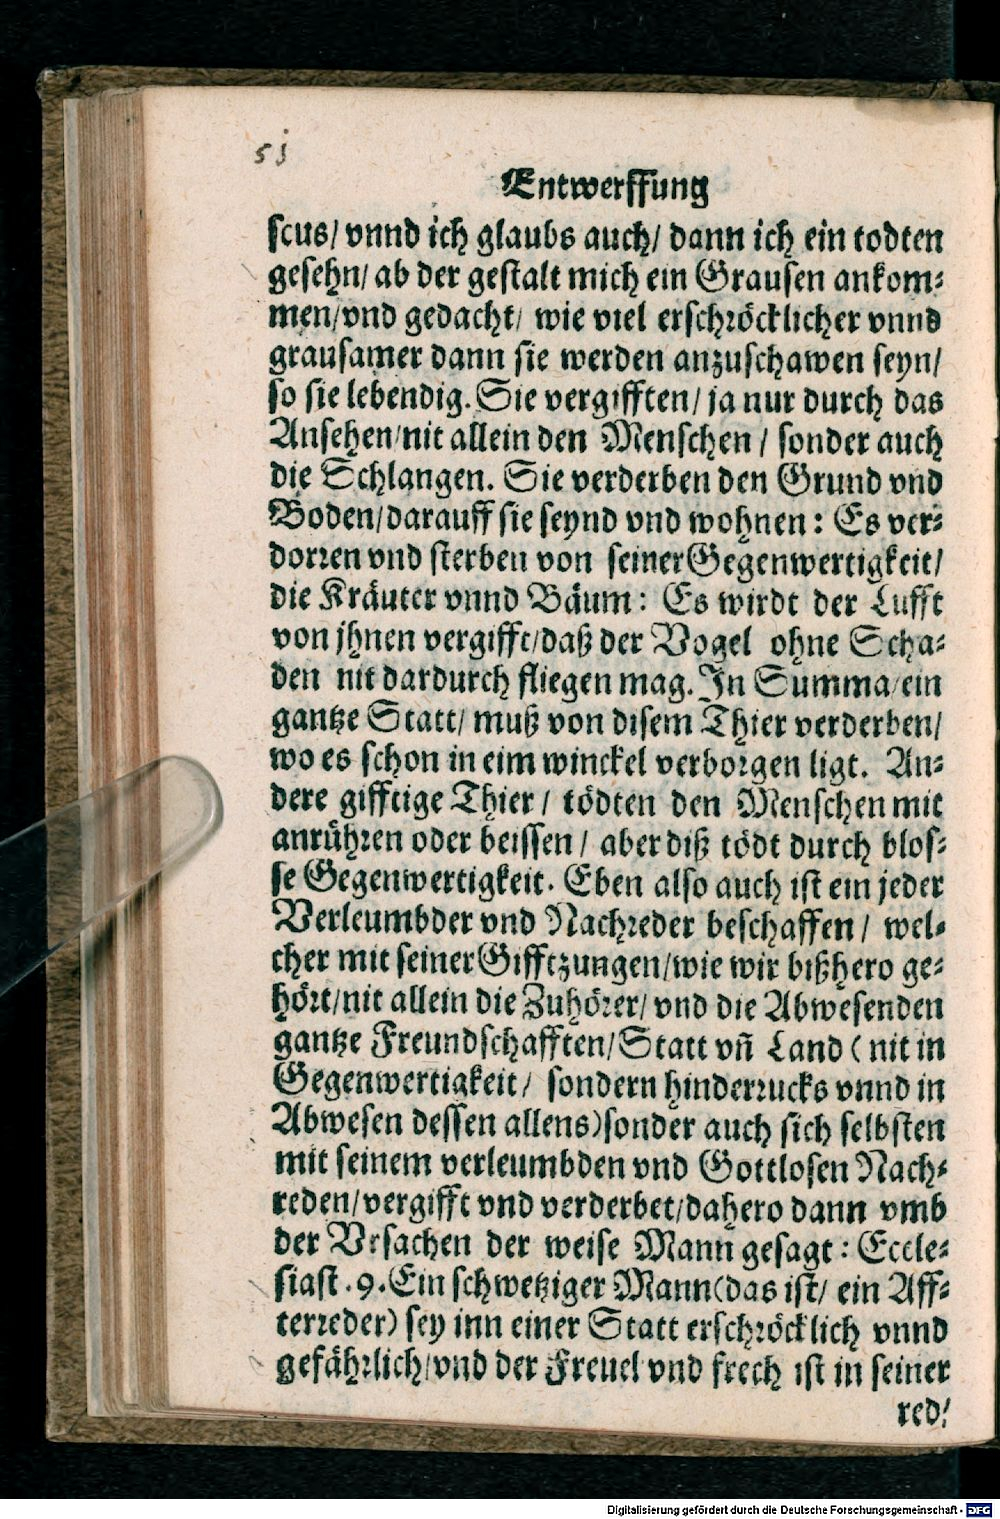 51
Entwerffung
scus/ vnnd ich glaubs auch/ dann ich ein todten
gesehn/ ab der gestalt mich ein Grausen ankom⸗
men/vnd gedacht/ wie viel erschröcklicher vnnd
grausamer dann sie werden anzuschawen seyn/
so sie lebendig. Sie vergifften/ ja nur durch das
Ansehen/nit allein den Menschen / sonder auch
die Schlangen. Sie verderben den Grund vnd
Boden/darauff sie seynd vnd wohnen: Es ver⸗
dorren vnd sterben von seiner Gegenwertigkeit/
die Kräuter vnnd Bäum: Es wirdt der Lufft
von jhnen vergifft/daß der Vogel ohne Scha⸗
den nit dardurch fliegen mag. In Summa/ein
gantze Statt/ muß von disem Thier verderben/
wo es schon in eim winckel verborgen ligt. An⸗
dere gifftige Thier/ tödten den Menschen mit
anrühren oder beissen/ aber diß tödt durch blos⸗
se Gegenwertigkeit. Eben also auch ist ein jeder
Verleumbder vnd Nachreder beschaffen/ wel⸗
cher mit seiner Gifftzungen/wie wir bißhero ge⸗
hört/nit allein die Zuhörer/ vnd die Abwesenden
gantze Freundschafften/Statt vñ Land ( nit in
Gegenwertigkeit/ sondern hinderrucks vnnd in
Abwesen dessen allens)sonder auch sich selbsten
mit seinem verleumbden vnd Gottlosen Nach⸗
reden/vergifft vnd verderbet/dahero dann vmb
der Vrsachen der weise Mann gesagt: Eccle⸗
siast. 9. Ein schwetziger Mann(das ist/ ein Aff⸗
terreder) sey inn einer Statt erschröcklich vnnd
gefährlich/vnd der Freuel vnd frech ist in seiner
red/
Digitalisierung gefördert durch die Deutsche Forschungsgemeinschaft - DFG